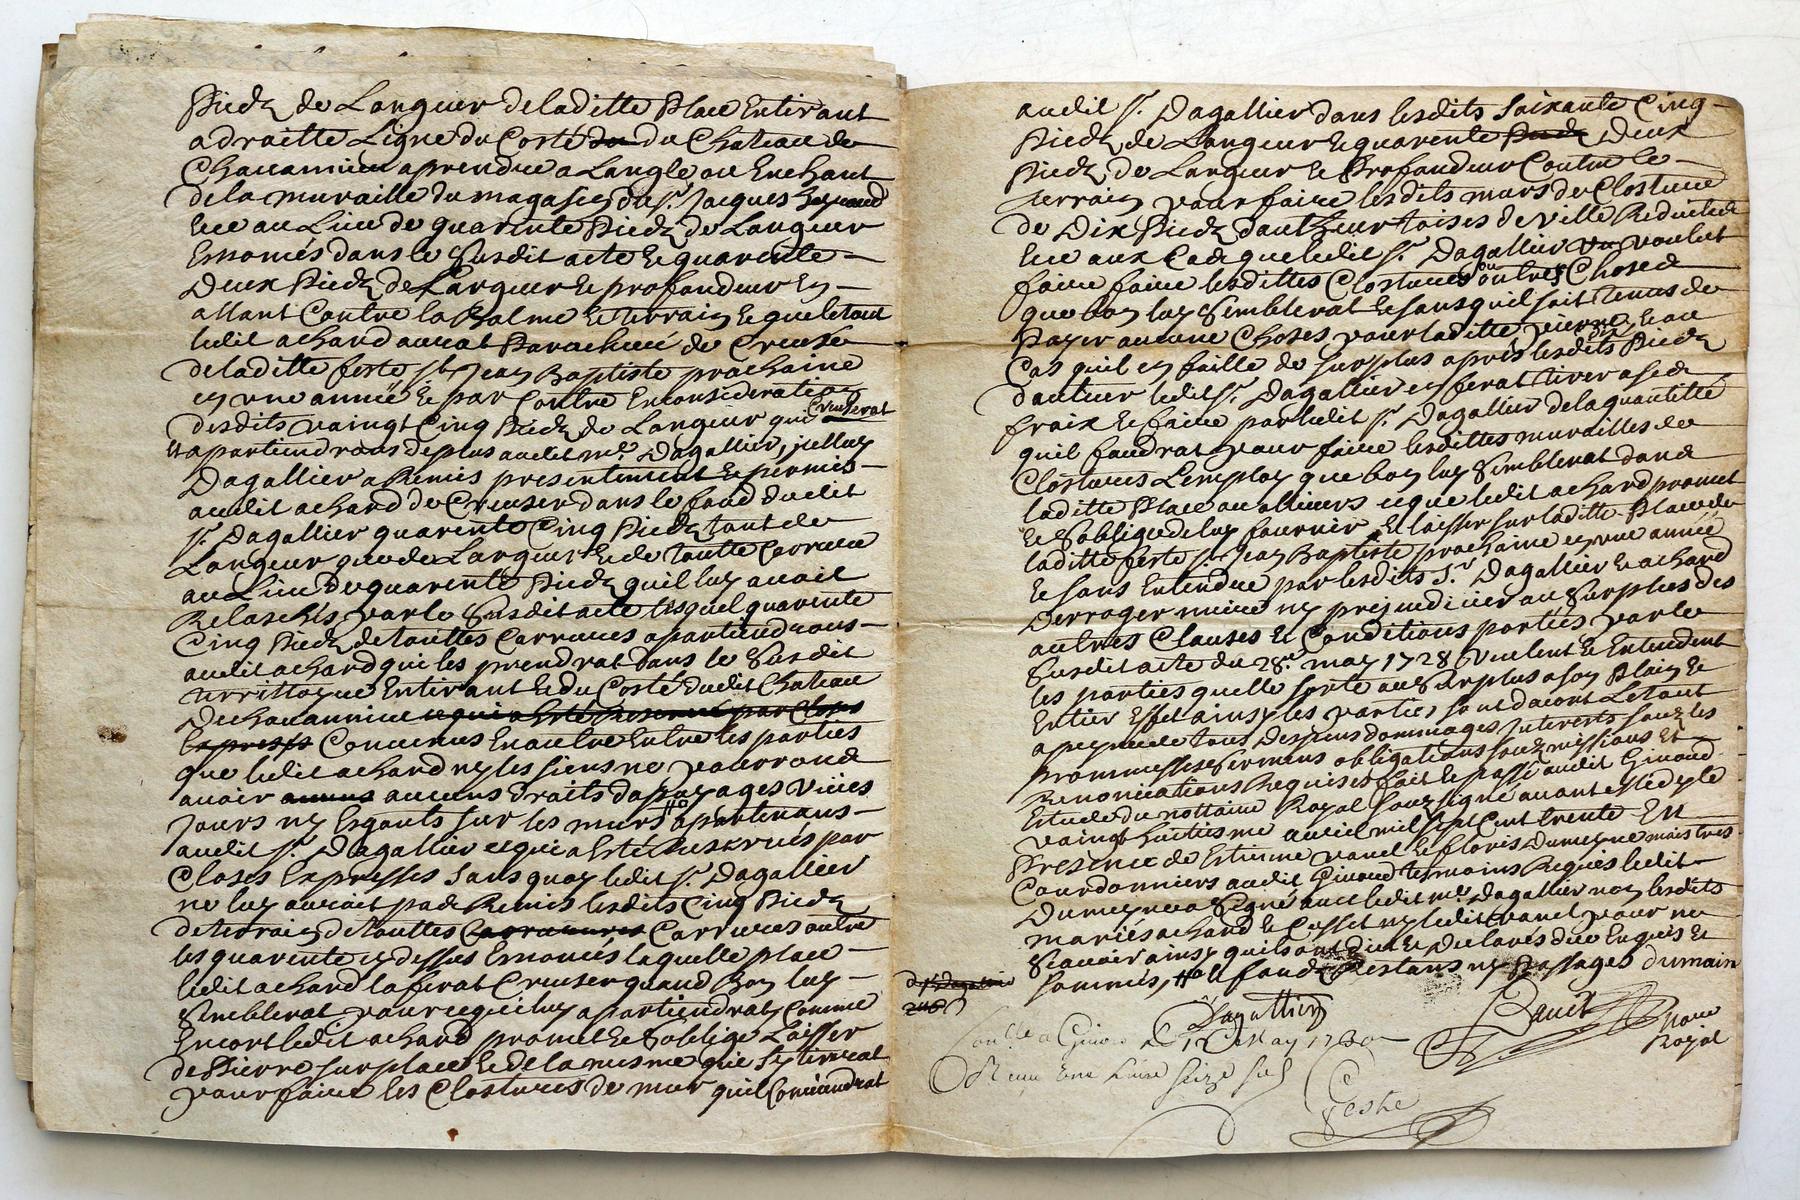 Piedz de Longueur de laditte Place En tirant
a draitte Ligne du Costé du du Chateau de
Chauannieu a prendre a Langle ou Enchant
de la muraille du magasin du sr. Jacques
Ece au Lieu de quarente Piedz de Longueur
Enoncés dans le Susdit acte Et quarente
Deux Piedz de Largeur Et profondeur En
allant Contre la Balme Et terrain Et que le tout
ledit achard aurat Parachevé de Creuser
de laditte feste st Jean Baptiste prochaine
en une année Et par Contre En consideration
desdits vaingt Cinq Piedz de Longueur qui Creuserat
Et apartiendrons de plus audit mre. Dagallier, jcelluy
Dagallier a Remis presentement Et permis
audit achard de Creuser dans le fond dudit
sr. Dagallier quarente Cinq Piedz tant de
Longueur que de Largeur Et de toutte Carrure
au Lieu de quarente Piedz quil luy auoit
Relaschés par le Susdit acte lesquel quarente
Cinq Piedz de touttes Carrures apartiendrons
audit achard qui les prendrat dans le Susdit
territtoy ne Entirant Et du Costé dudit Chateau
De chauannieu ce qui a Esté Reservé par Closes
Expresses Conuenus En outre Entre les parties
que ledit achard ny les siens ne pourrons
auoir aucuns aucuns droits de passages Vües
Jours ny Esgouts sur les murs apartenans
audit sr. Dagallier ce qui a Esté Reservés par
Closes Expresses Sans quoy ledit sr. Dagallier
ne luy auroit pas Remis lesdits Cinq Piedz
de terrain de touttes Carrures outre
les quarente cy dessus Enoncés laquelle place
ledit achard la ferat Creuser quand Bon luy
Semblerat pour ce qui luy apartiendrat Comme
Encor ledit achard promet Et Soblige Laisser
de Pierre sur place Et de la mesme que Sy tirerat
pour faire les Clostures de mur quil Conuiendrat
audit sr. Dagallier dans lesdits Soixante Cinq
Piedz de Longueur Et quarente Piedz Deux
Piedz de Largeur Et Profondeur Contre le
Terrain pour faire lesdits murs de Closture
de Dix Piedz dautheur toises de ville Reduitte
Ece aux Cas que ledit sr. Dagallier voulut
faire faire lesdittes Clostures ou autres Choses
que bon luy Semblerat Et sans quil soit tenus de
Payer aucune Choses pour laditte pierre, Et au
Cas quil en faille de surplus apres lesdits dix Piedz
dauteur ledit sr. Dagallier en ferat tirer a ses
fraix Et faire par ledit sr. Dagallier de la quantitté
quil faudrat pour faire lesdittes murailles de
Clostures Lemploy que bon luy Semblerat dans
laditte Place ou allieurs ce que ledit achard promet
Et Soblige de luy fournir Et laisser sur laditte Place de
laditte feste st. Jean Baptiste prochaine en une année
Et sans Entendre par lesdits srs Dagallier Et achard
Derroger nuire ny prejudicier au Surplus des
autres Clauses Et Conditions portées par le
Susdit acte du 28e. may 1728 Veulent Et Entendent
les parties quelle sorte au Surplus a son Plain Et
Entier Effet ainsy les parties sont dacort Le tout
a peyne de tous Despens dommages Interests sous les
Prommesses Sermens obligations soumissions Et
Renonciations Requises fait Et passé audit Giuord
Estude du nottaire Royal souzsigné auant
vaingt huitiesme auril mil sept Cent trente En
Presence de Estienne Vanel Et Cloris Dumeyne maistres
Courdonniers audit Giuord tesmoins Requis ledit
Dumeyne a Signé auec ledit mre. Dagallier non lesdits
mariés achard Et Cosset ny ledit Vanel pour ne
Scauoir ainsy quils ont dit Et Declarés de ce Enquis Et
Sommés, le fond Restans ny Passages
Dagallier
Bauit
Noire
Royal
Conlle a Giuors Le 12 May 1730
Receu Une Liure Seize sols
Teste